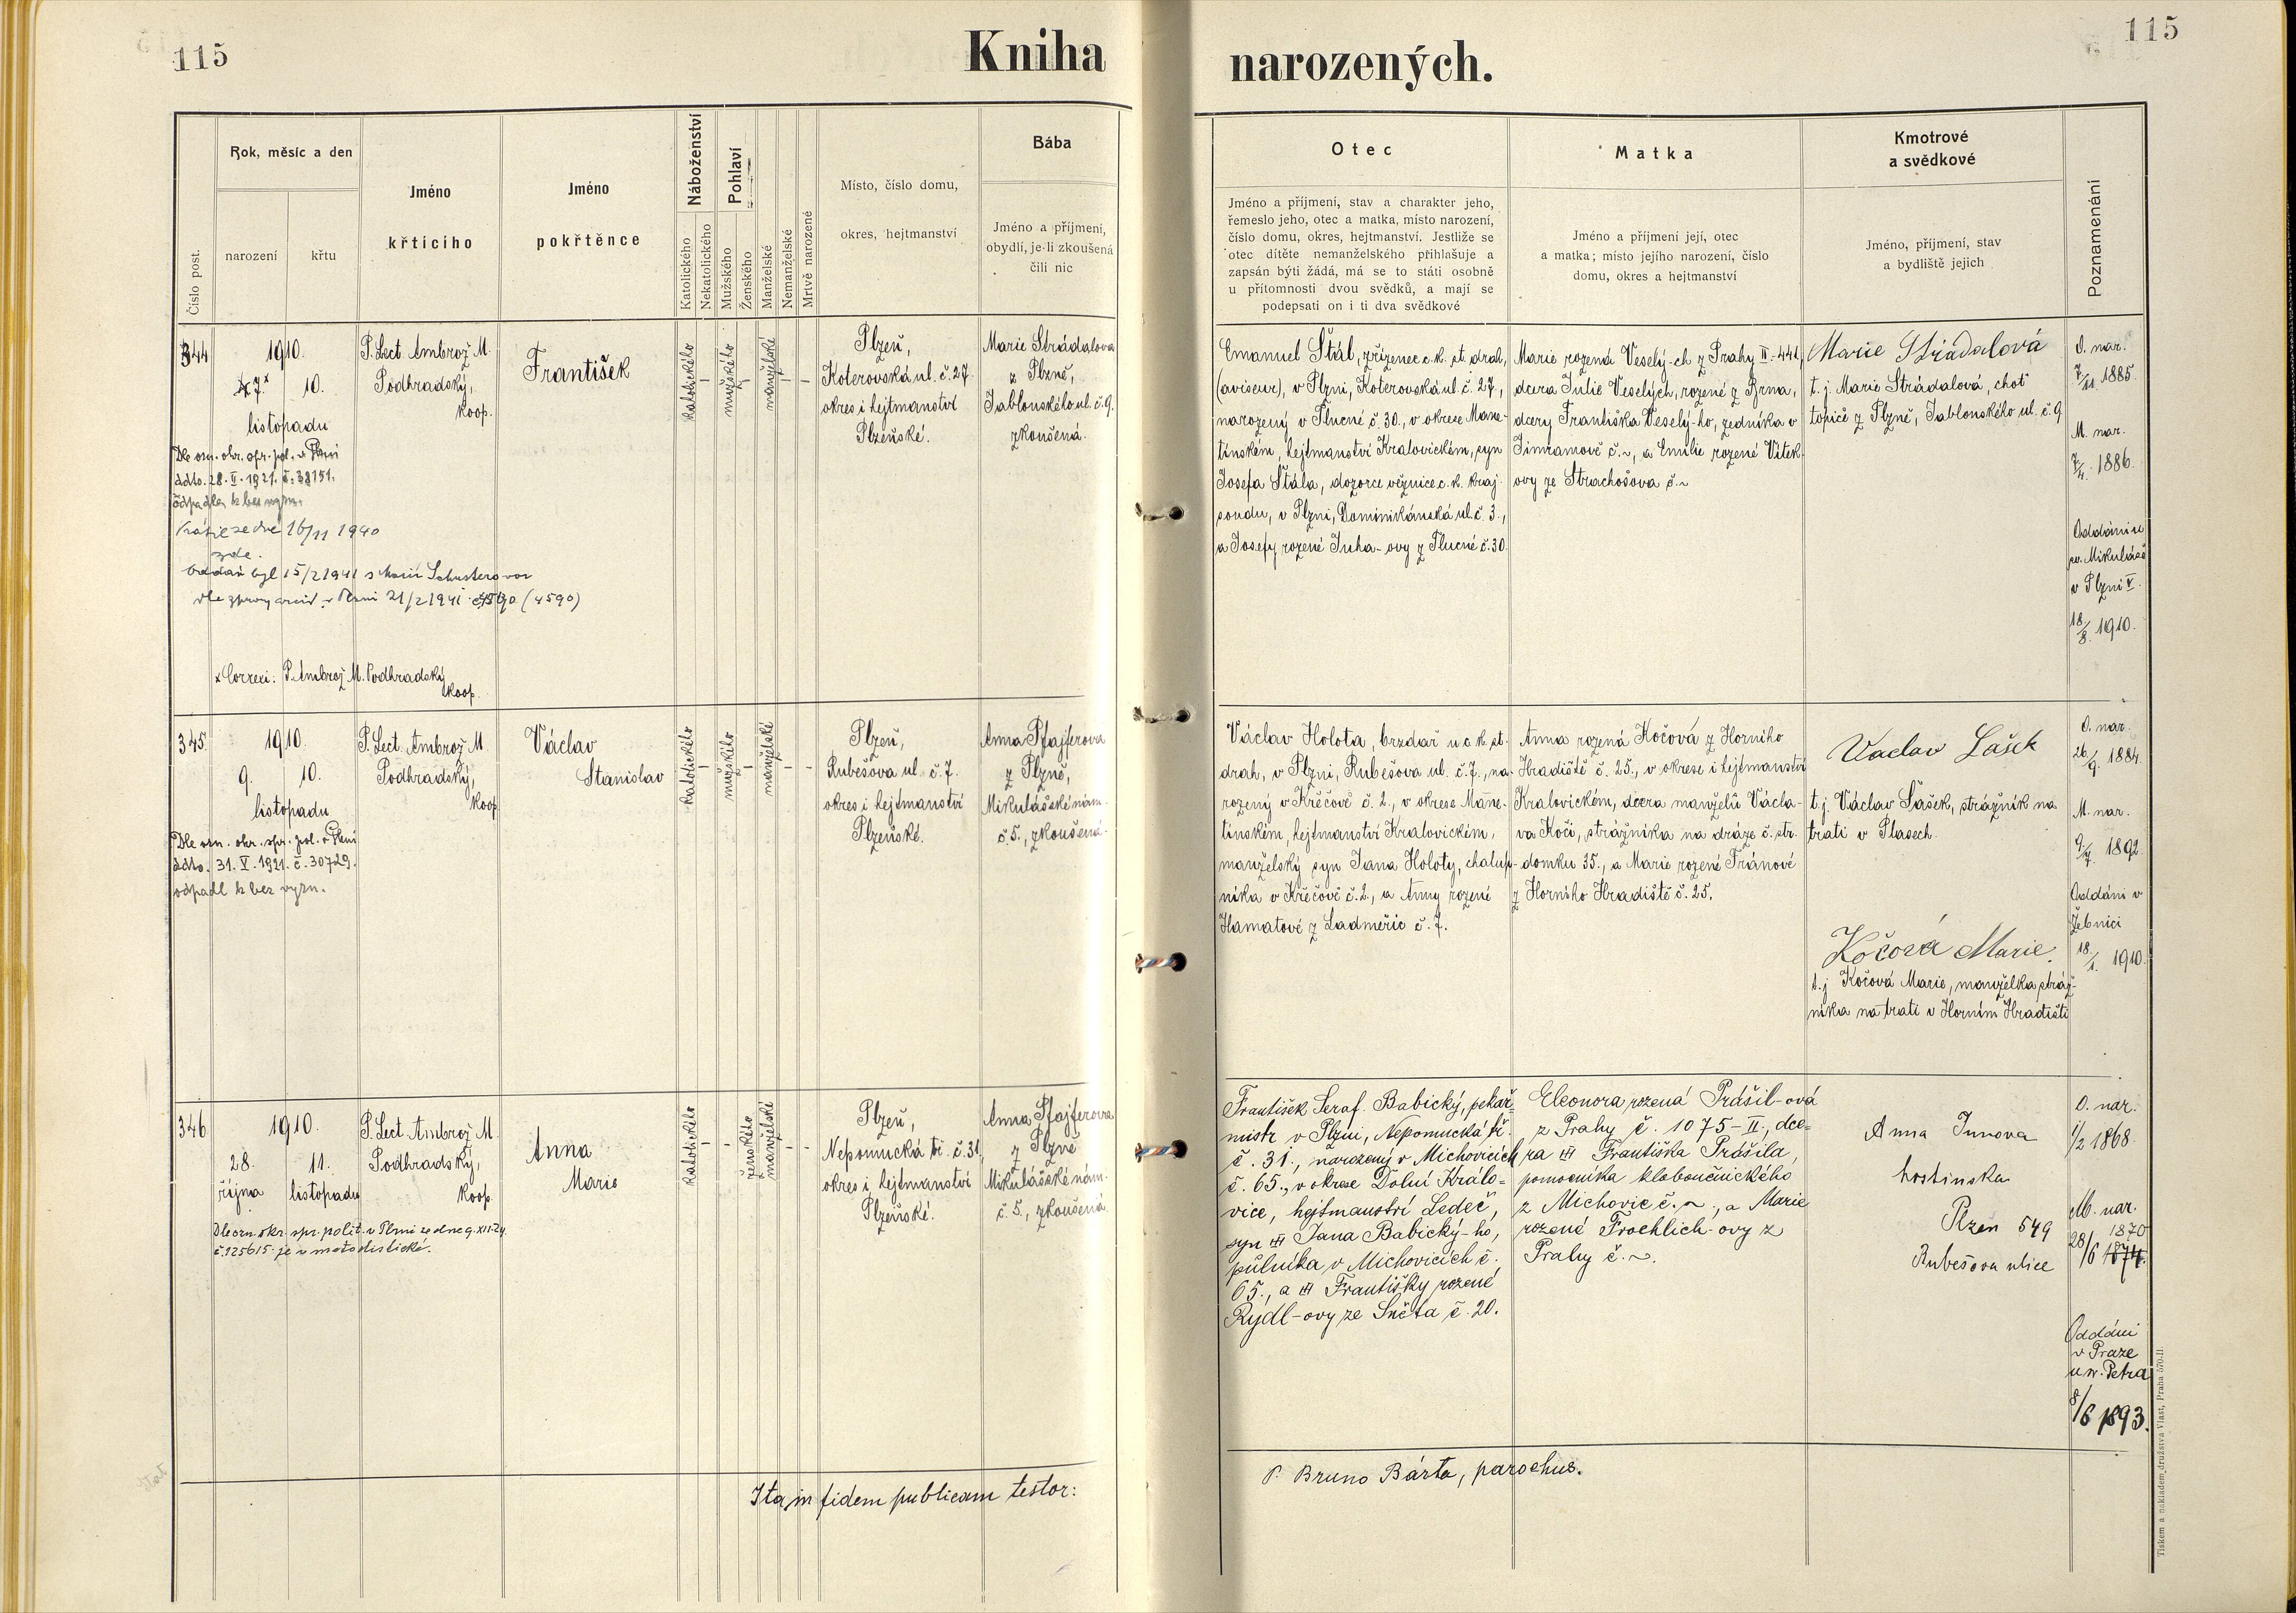 115
Kniha narozených.
115
Číslo post.
Rok, měsíc a den
narození
křtu
Jméno
křticího
Jméno
pokřtěnce
Náboženství
Katolického
Nekatolického
Pohlaví
Mužského
Ženského
Manželské
Nemanželské
Mrtvě narozené
Místo, číslo domu,
okres, hejtmanství
Bába
Jméno a příjmení,
obydlí, je-li zkoušená
čili nic
Otec
Jméno a příjmení, stav a charakter jeho,
řemeslo jeho, otec a matka, místo narození,
číslo domu, okres, hejtmanství. Jestliže se
otec dítěte nemanželského přihlašuje a
zapsán býti žádá, má se to státi osobně
u přítomnosti dvou svědků, a mají se
podepsati on i ti dva svědkové
Matka
Jméno a příjmení její, otec
a matka; místo jejího narození, číslo
domu, okres a hejtmanství
Kmotrové
a svědkové
Jméno, příjmení, stav
a bydliště jejich
Poznamenání
344
1910.
7.x 10.
listopadu
Dle osn. okr. spr. pol. v Plzni
ddto. 28. II. 1921. č. 38151.
odpadl k bez vyzn.
Vrátil se dne 16/11 1940
zde.
Oddán byl 15/2 1941 s Marií Schusterovou
dle zprávy arcid. v Plzni 21/2 1941 (4590)
x Correxi: P. Ambrož M. Podhradský
koop.
P. Lect. Ambrož M.
Podhradský,
koop.
František
katolického
mužského
manželské
Plzeň,
Koterovská ul. č. 27.
okres i hejtmanství
Plzeňské.
Marie Strádalova
z Plzně,
Jablonského ul. č. 9.
zkoušená.
Emanuel Štál, zřízenec c. k. st. drah,
(aviseur), v Plzni, Koterovská ul. č. 27,
narozený v Plucné č. 30., v okrese Mane-
tínském, hejtmanství Kralovickém, syn
Josefa Štála, dozorce věznice c. k. kraj.
soudu, v Plzni, Dominikánská ul. č. 3.,
a Josefy rozené Juha-ovy z Plucné č. 30.
Marie rozená Veselý-ch z Prahy II.-441,
dcera Julie Veselých, rozené z Brna,
dcery Františka Veselý-ho, zedníka v
Jimramově č. ~, a Emilie rozené Vítek-
ovy ze Strachošova č. ~
Marie Strádalová
t. j. Marie Strádalová, choť
topiče z Plzně, Jablonského ul. č. 9
O. nar.
7/11. 1885.
M. nar.
7/4. 1886.
Oddáni u
sv. Mikuláše
v Plzni V.
18/8. 1910.
345.
1910.
9. 10.
listopadu
Dle osn. okr. spr. pol. v Plzni
ddto. 31. V. 1921. č. 30729.
odpadl k bez vyzn.
P. Lect. Ambrož M.
Podhradský,
koop.
Václav
Stanislav
katolického
mužského
manželské
Plzeň,
Rubešova ul. č. 7.
okres i hejtmanství
Plzeňské.
Anna Pfajferova
z Plzně,
Mikulášské nám.
č. 5., zkoušená.
Václav Holota, brzdař u c. k. st.
drah, v Plzni, Rubešova ul. č. 7., na-
rozený v Křečově č. 2., v okrese Mane-
tínském, hejtmanství Kralovickém,
manželský syn Jana Holoty, chalup-
níka v Křečově č. 2., a Anny rozené
Hamatové z Ladměřic č. 7.
Anna rozená Kočová z Horního
Hradiště č. 25., v okrese i hejtmanství
Kralovickém, dcera manželů Václa-
va Kočí, strážníka na dráze č. str.
domku 35., a Marie rozené Fránové
z Horního Hradiště č. 25.
Vaclav Lašek
t. j. Václav Lašek, strážník na
trati v Plasech.
Kočová Marie.
t. j. Kočová Marie, manželka stráž-
níka na trati v Horním Hradišti
O. nar.
26/9. 1884.
M. nar.
9/7. 1892.
Oddáni v
Žebnici
18/1. 1910.
346
1910.
28. 11.
října listopadu
Dle ozn. okr. spr. polit. v Plzni ze dne 9. XII. 24.
č. 125615 je v metodistické.
P. Lect. Ambrož M.
Podhradský,
koop.
Anna
Marie
katolického
ženského
manželské
Plzeň,
Nepomucká tř. č. 31,
okres i hejtmanství
Plzeňské.
Anna Pfajferova
z Plzně
Mikulášské nám.
č. 5., zkoušená.
František Seraf. Babický, pekař-
mistr v Plzni, Nepomucká tř.
č. 31., narozený v Michovicích
č. 65., v okrese Dolní Králo-
vice, hejtmanství Ledeč,
syn Jana Babický-ho,
půlníka v Michovicích č.
65., a Františky rozené
Rýdl-ovy ze Sněta č. 20.
Eleonora rozená Prášil-ová
z Prahy č. 1075-II., dce-
ra Františka Prášila,
pomocníka kloboučnického
z Michovic č. ~., a Marie
rozené Froehlich-ovy z
Prahy č. ~.
Anna Innova
hostinska
Plzen 549
Rubešova ulice
O. nar.
1/2 1868.
M. nar.
1870
28/6 1874.
Oddáni
v Praze
u sv. Petra
8/6 1893.
Ita in fidem publicam testor:
P. Bruno Bárta, parochus.
Tiskem a nakladem družstva Vlast, Praha 570-II.